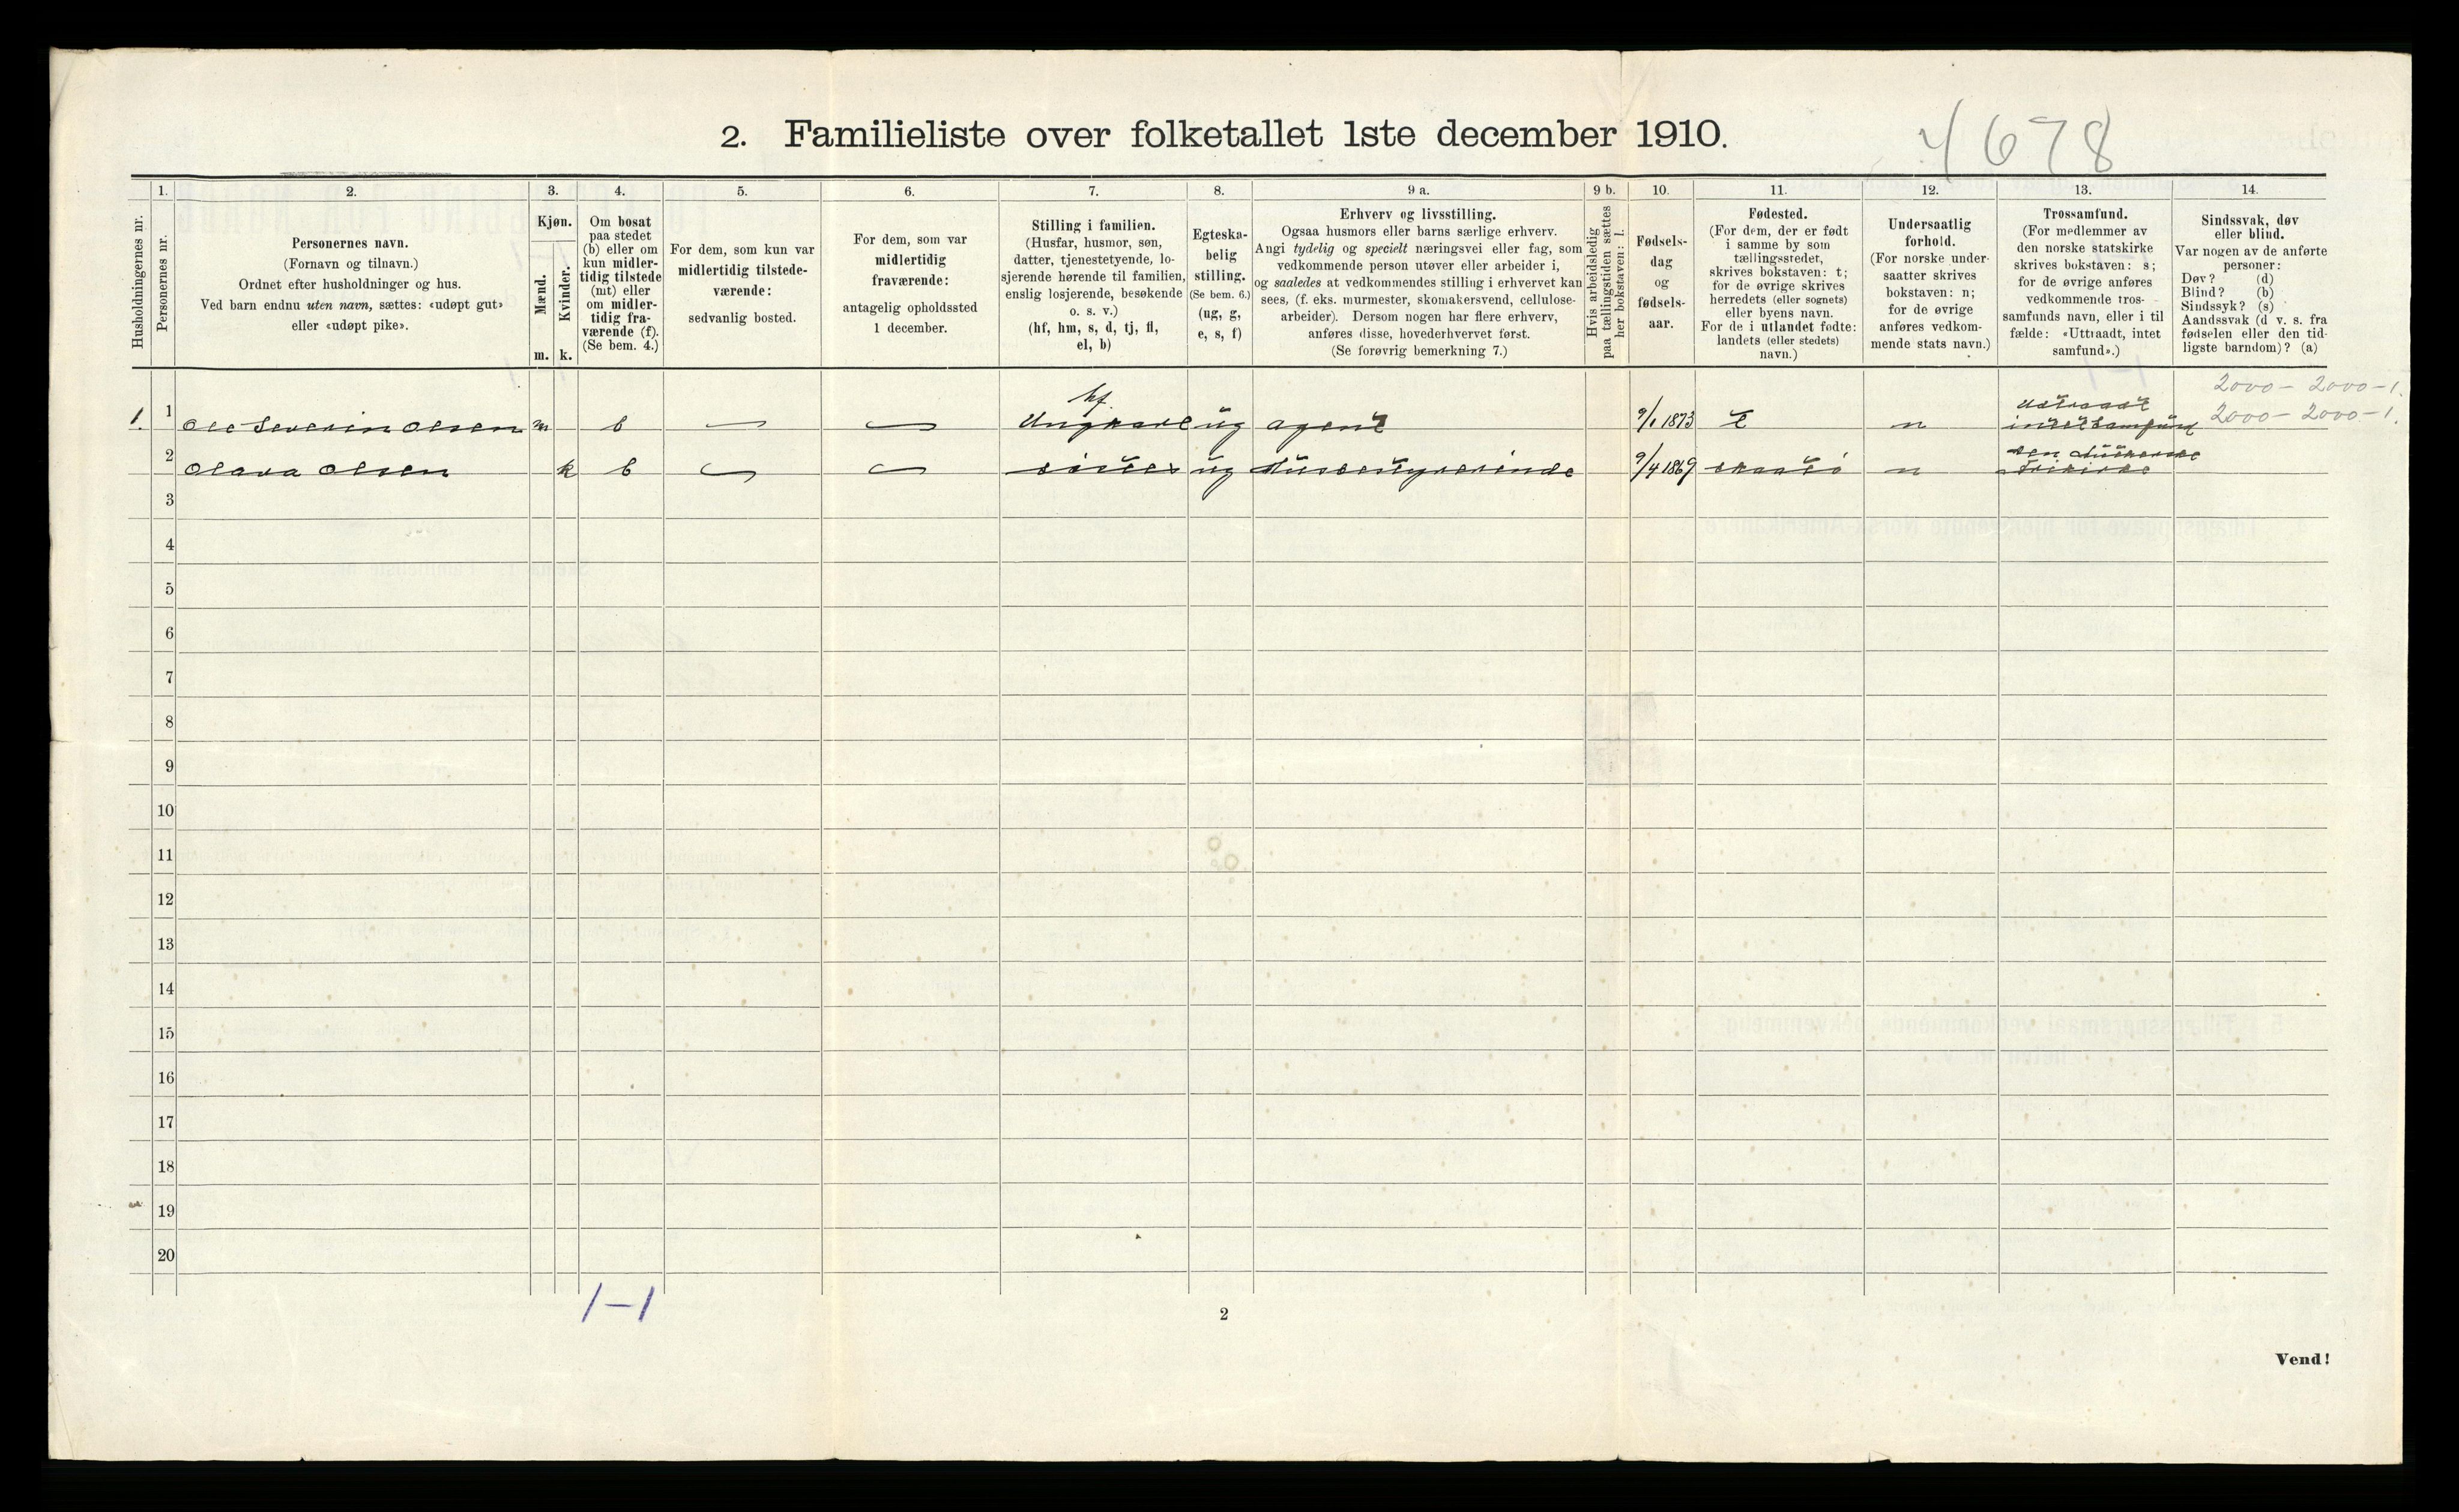 2. Familieliste over folketallet 1ste december 1910.
4678
1. 2. 3. 4. 5. 6. 7. 8. 9 a. 9 b. 10. 11. 12. 13. 14.
Husholdningernes nr.
Personernes nr.
Personernes navn.
(Fornavn og tilnavn.)
Ordnet efter husholdninger og hus.
Ved barn endnu uten navn, sættes: «udøpt gut»
eller «udøpt pike».
Kjøn.
Mænd.
Kvinder.
m. k.
Om bosat
paa stedet
(b) eller om
kun midler-
tidig tilstede
(mt) eller
om midler-
tidig fra-
værende (f).
(Se bem. 4.)
For dem, som kun var
midlertidig tilstede-
værende:
sedvanlig bosted.
For dem, som var
midlertidig
fraværende:
antagelig opholdssted
1 december.
Stilling i familien.
(Husfar, husmor, søn,
datter, tjenestetyende, lo-
sjerende hørende til familien,
enslig losjerende, besøkende
o. s. v.)
(hf, hm, s, d, tj, fl,
el, b)
Egteska-
belig
stilling.
(Se bem. 6.)
(ug, g,
e, s, f)
Erhverv og livsstilling.
Ogsaa husmors eller barns særlige erhverv.
Angi tydelig og specielt næringsvei eller fag, som
vedkommende person utøver eller arbeider i,
og saaledes at vedkommendes stilling i erhvervet kan
sees, (f. eks. murmester, skomakersvend, cellulose-
arbeider). Dersom nogen har flere erhverv,
anføres disse, hovederhvervet først.
(Se forøvrig bemerkning 7.)
Hvis arbeidsledig
paa tællingstiden sættes
her bokstaven: l.
Fødsels-
dag
og
fødsels-
aar.
Fødested.
(For dem, der er født
i samme by som
tællingsstedet,
skrives bokstaven: t;
for de øvrige skrives
herredets (eller sognets)
eller byens navn.
For de i utlandet fødte:
landets (eller stedets)
navn.)
Undersaatlig
forhold.
(For norske under-
saatter skrives
bokstaven: n;
for de øvrige
anføres vedkom-
mende stats navn.)
Trossamfund.
(For medlemmer av
den norske statskirke
skrives bokstaven: s;
for de øvrige anføres
vedkommende tros-
samfunds navn, eller i til
fælde: «Uttraadt, intet
samfund».)
Sindssvak, døv
eller blind.
Var nogen av de anførte
personer:
Døv? (d)
Blind? (b)
Sindssyk? (s)
Aandssvak (d v. s. fra
fødselen eller den tid-
ligste barndom)? (a)
hf. Udtraadt 2000 - 2000 - 1.
1. 1 Ole Severin Olsen m b Ungkarl ug agent 9/1 1873 t n intet samfund 2000 - 2000 - 1.
den Lutherske
2 Olava Olsen k b søster ug Husbestyrerinde 9/4 1869 Skaatø n Frikirke
3
4
5
6
7
8
9
10
11
12
13
14
15
16
17
18
19
20
1-1
2
Vend!